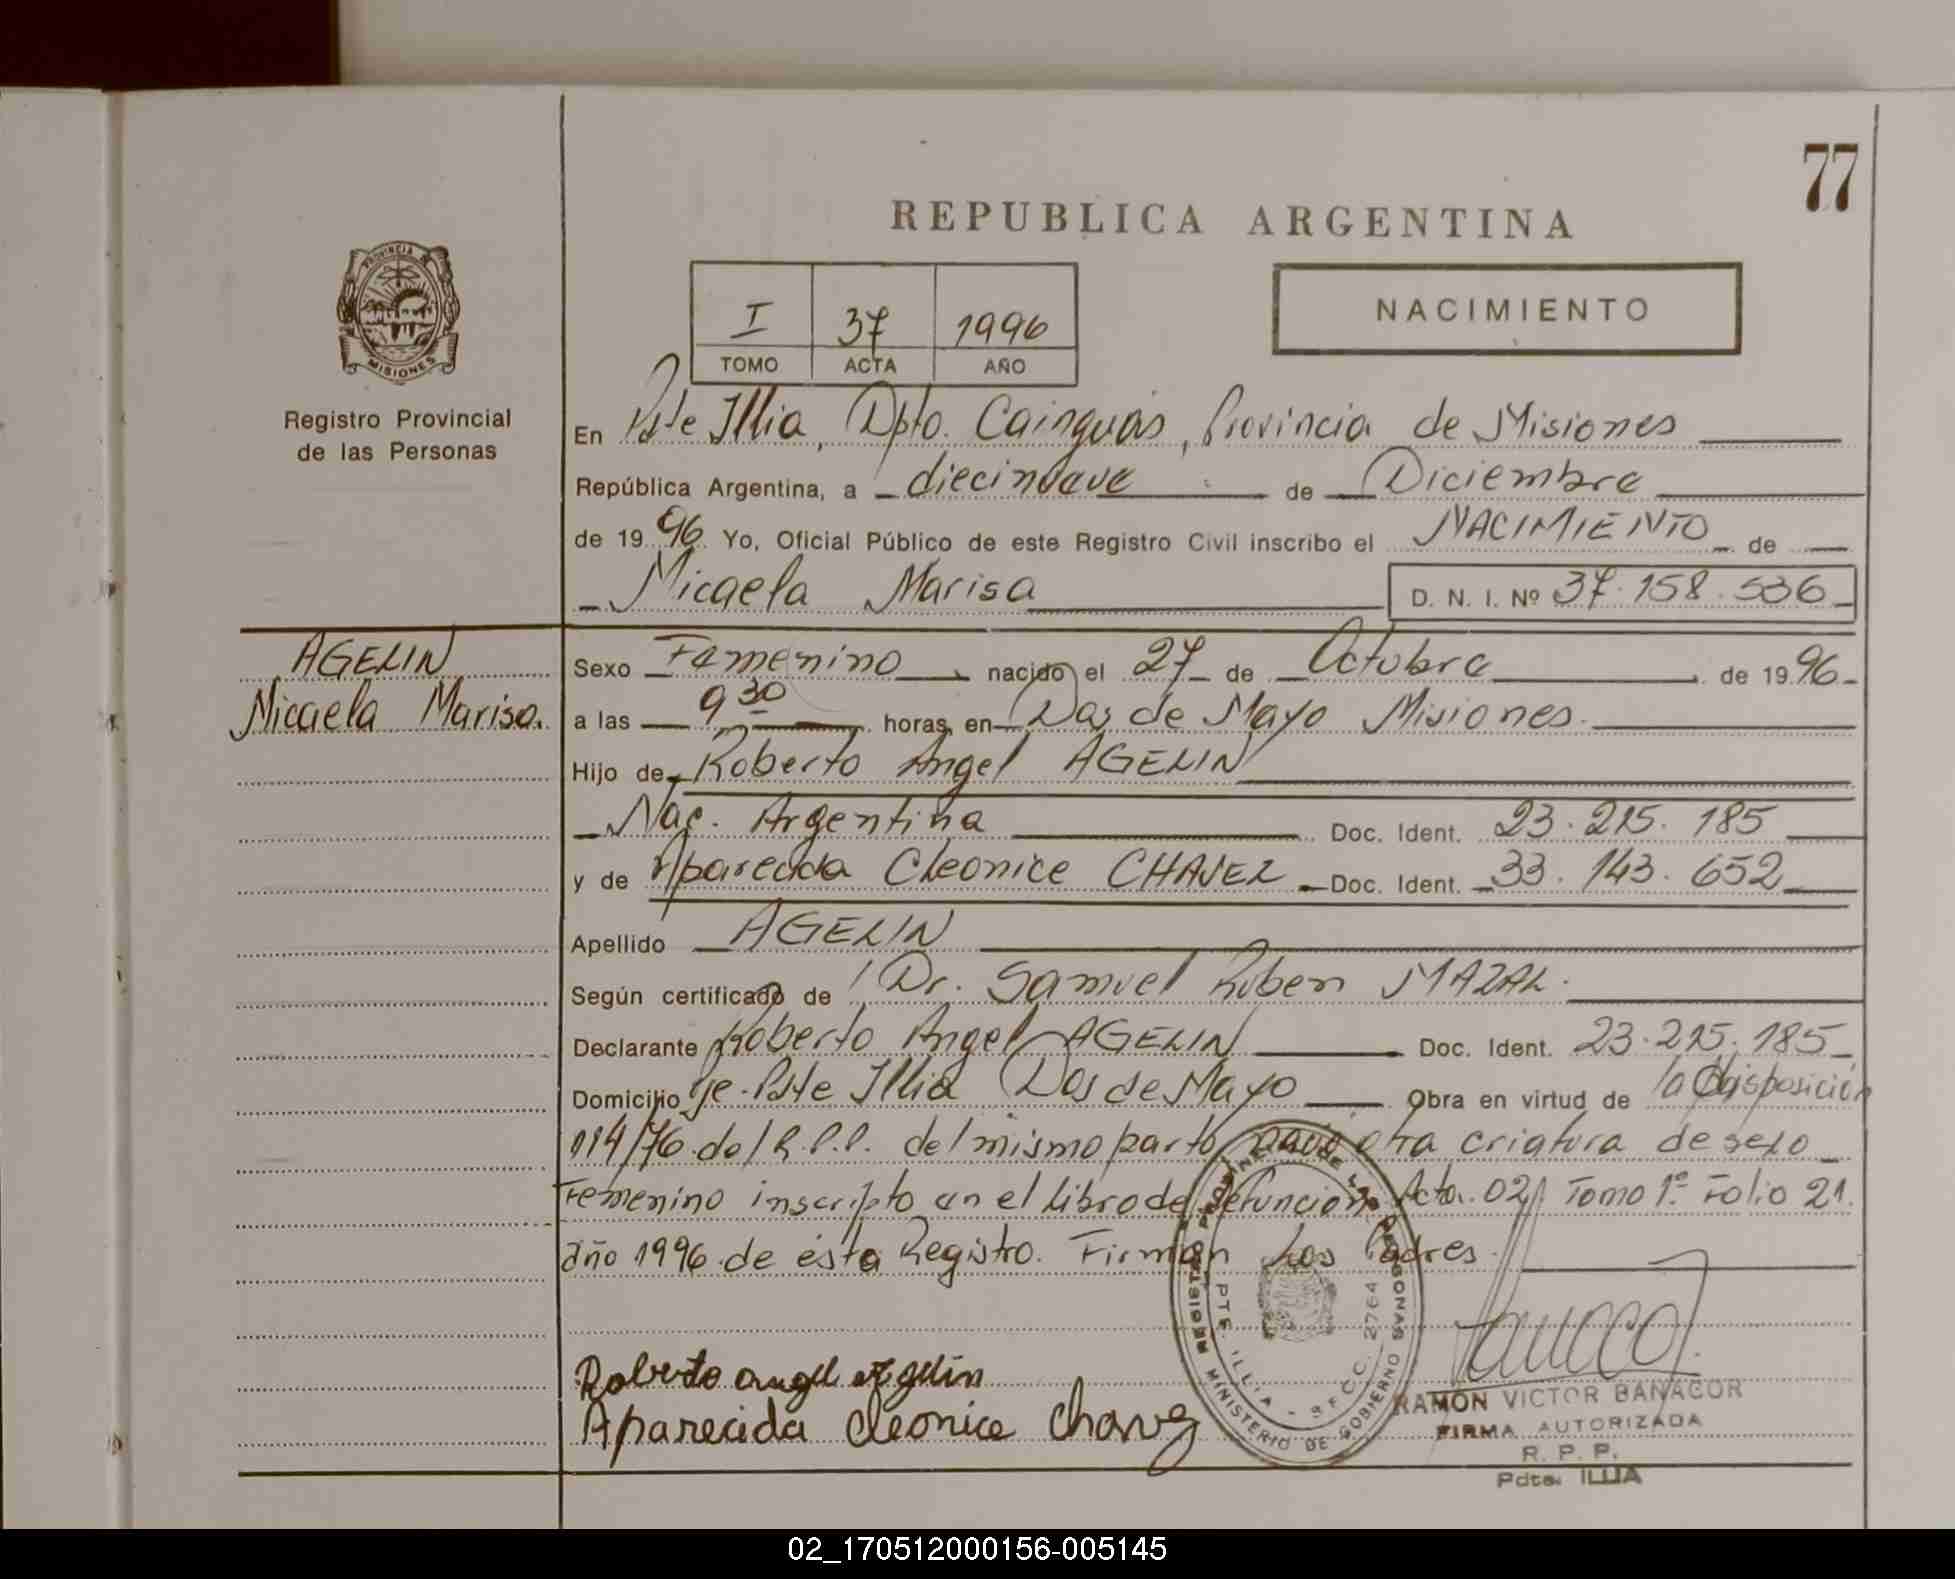 77
REPUBLICA ARGENTINA
PROVINCIA DE
MISIONES
Registro Provincial
de las Personas
I 37 1996
TOMO ACTA AÑO
NACIMIENTO
En Pdte Illia, Dpto. Cainguás, Provincia de Misiones
República Argentina, a diecinueve de Diciembre
de 1996 Yo, Oficial Público de este Registro Civil inscribo el NACIMIENTO de
Micaela Marisa D. N. I. Nº 37.158.536
AGELIN
Micaela Marisa.
Sexo Femenino nacido el 27 de Octubre de 1996
a las 9 30 horas, en Dos de Mayo Misiones.
Hijo de Roberto Angel AGELIN
Nac. Argentina Doc. Ident. 23.215.185
y de Aparecida Cleonice CHAVEZ Doc. Ident. 33.143.652
Apellido AGELIN
Según certificado de Dr. Samuel Ruben MAZAL.
Declarante Roberto Angel AGELIN Doc. Ident. 23.215.185
Domicilio Pje. Pdte Illia Dos de Mayo Obra en virtud de la disposición
114/76 del R.P.P. del mismo parto nació otra criatura de sexo
Femenino inscripto en el Libro de defunción Acta. 02 Tomo 1º Folio 21.
año 1996 de ésta Registro. Firman Los Padres.
REGISTRO PROVINCIAL DE LAS PERSONAS
MINISTERIO DE GOBIERNO
PTE. ILLIA - SFCC. 2764
Roberto angel agelin
Aparecida cleonice Chavez
RAMON VICTOR BANACOR
FIRMA AUTORIZADA
R. P. P.
Pdte. ILLIA
02_170512000156-005145